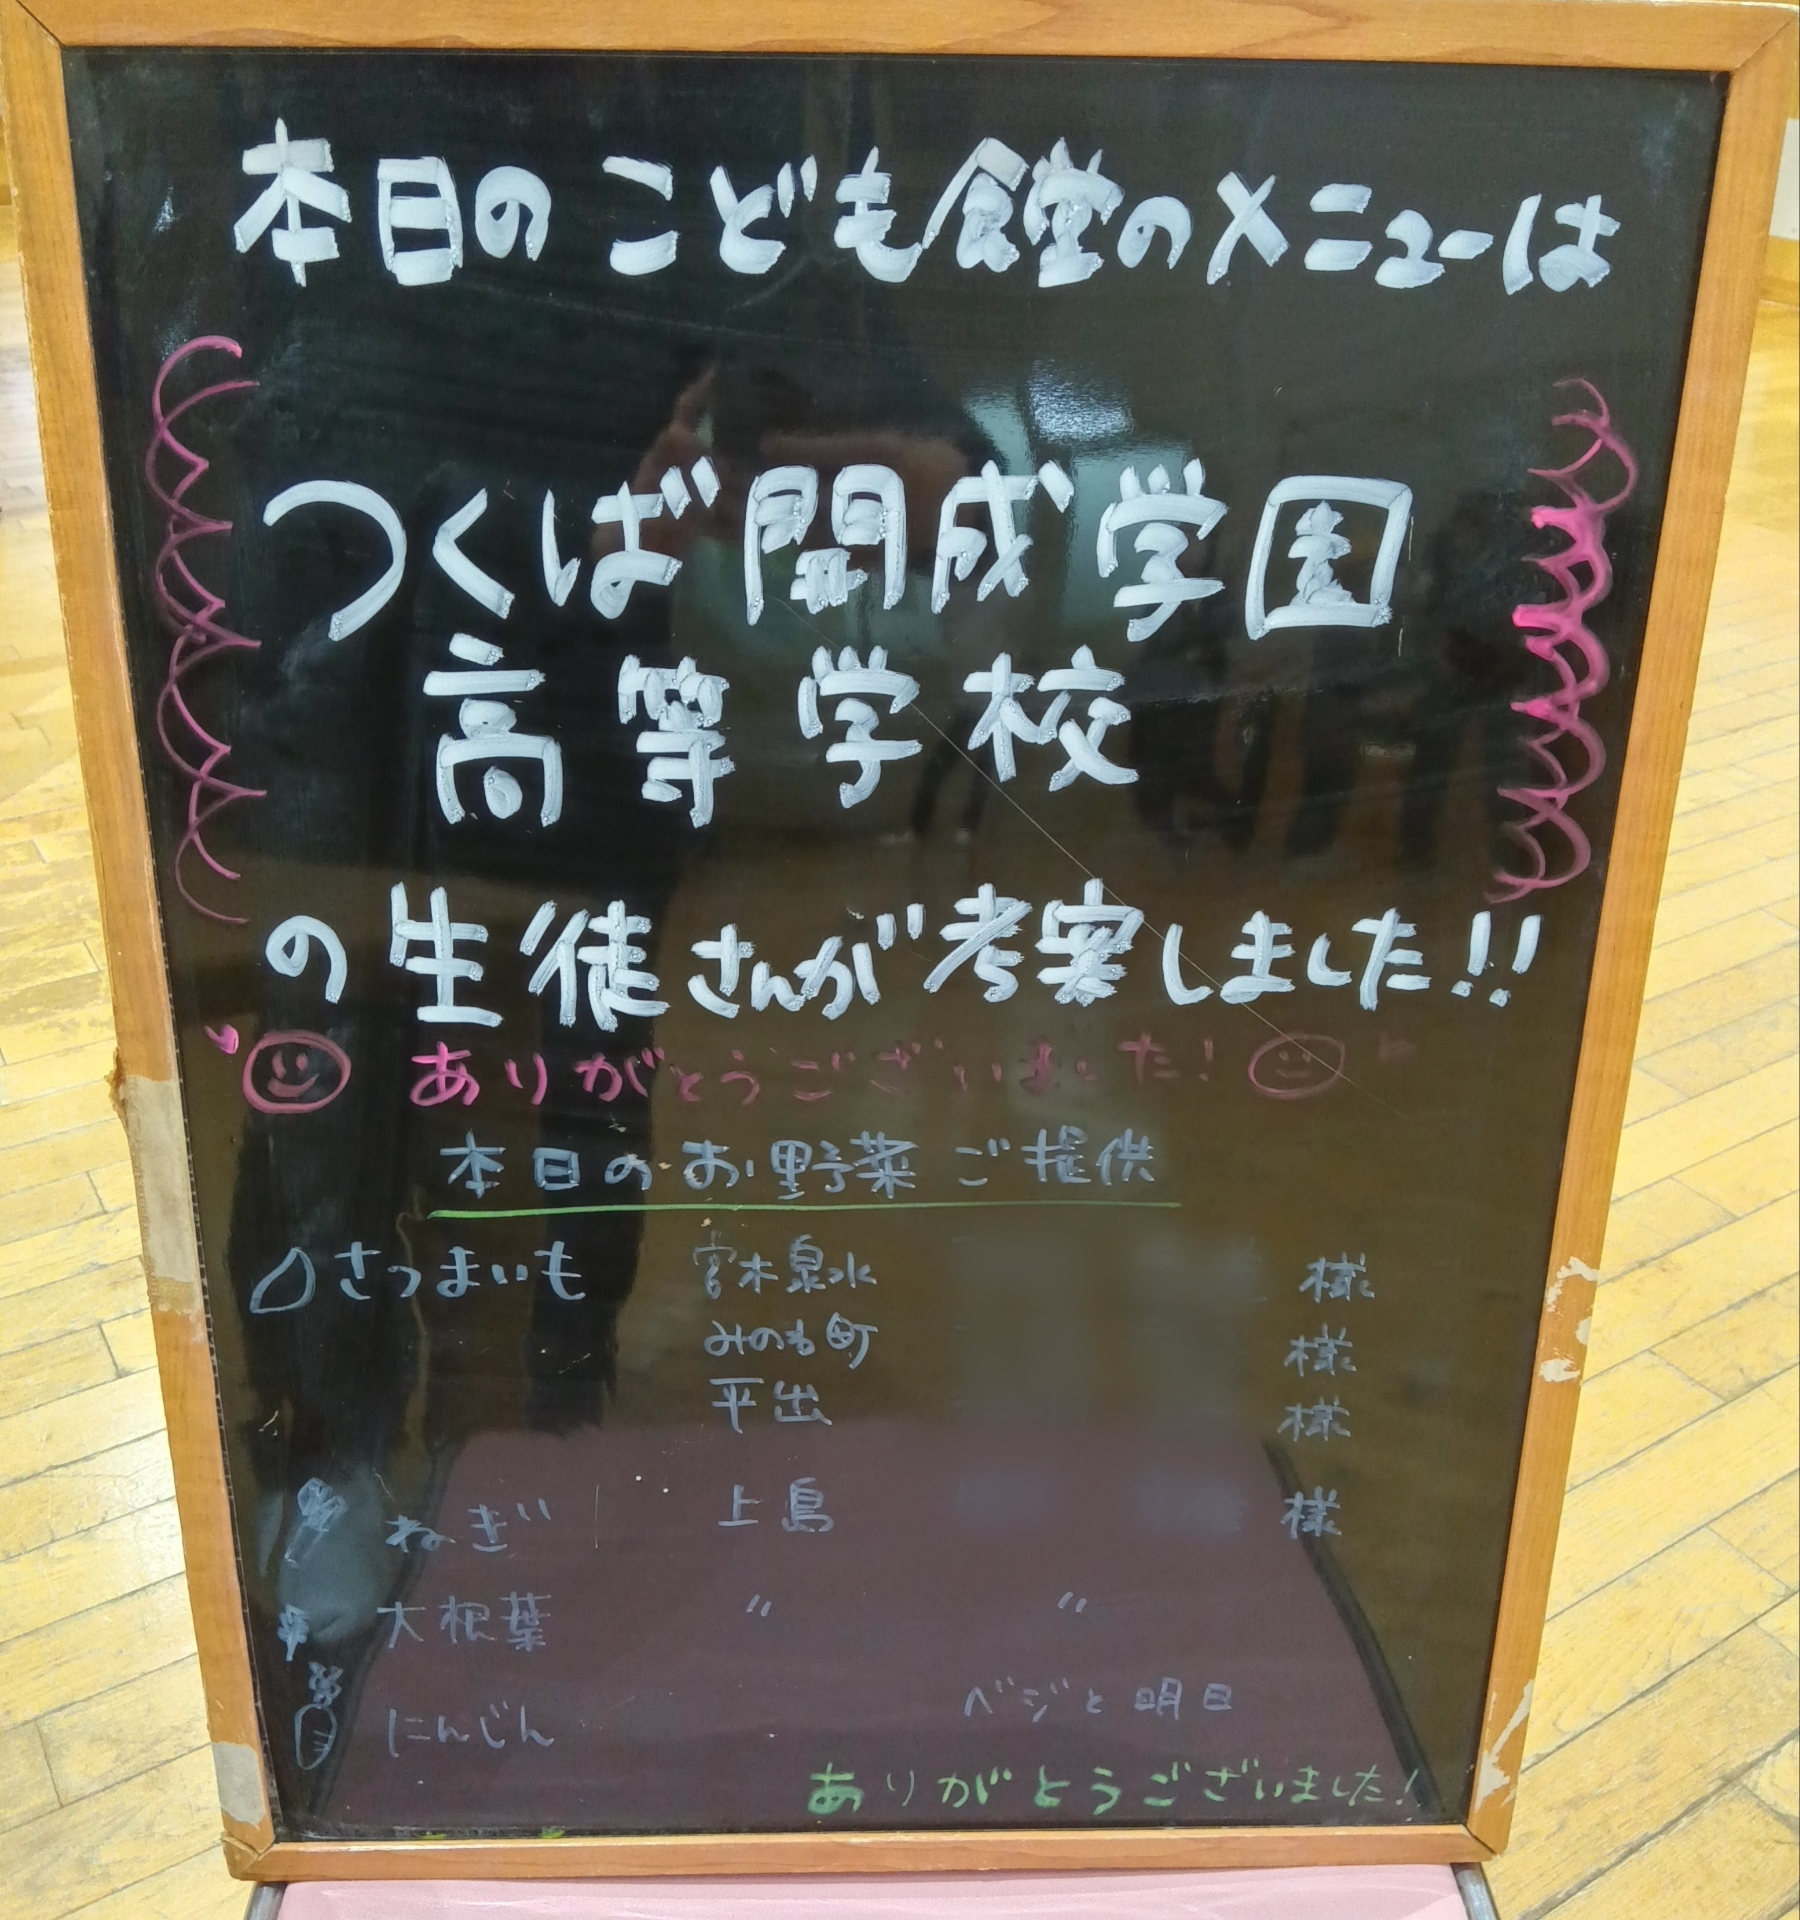 本日のこども食堂のメニューは
つくば開成学園
高等学校
の生徒さんが考案しました!!
ありがとうございました!
本日のお野菜ご提供
さつまいも 宮木泉水 様
みのも町 様
平出 様
ねぎ 上島 様
大根葉 〃 〃
にんじん ベジと明日
ありがとうございました!